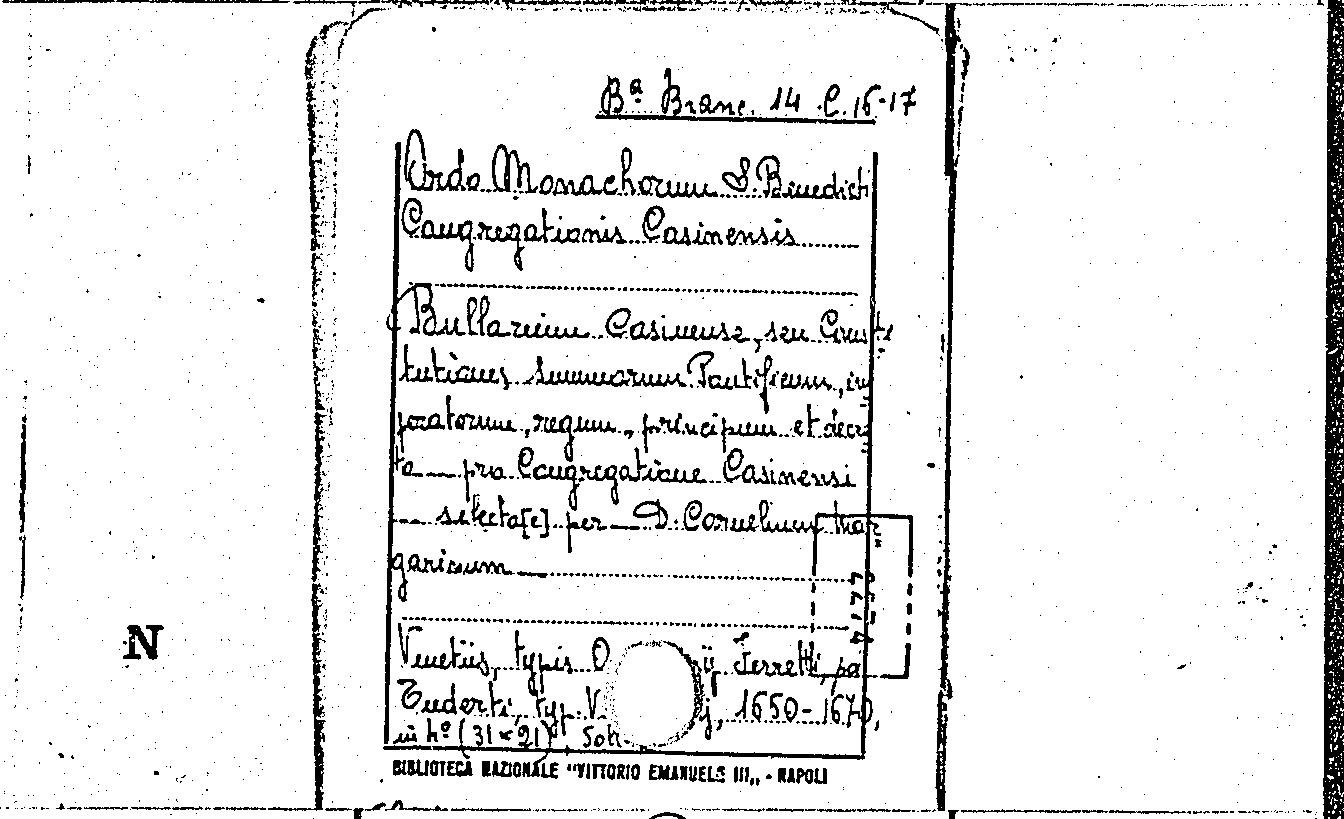 Bª Branc. 14 C. 16-17
Ordo Monachorum S. Benedicti
Congregationis Casinensis
Bullarium Casinense, seu Consti
tutiones summorum Pontificum, im
peratorum, regum, principum et decre
ta — pro Congregatione Casinensi
— selecta[e] per — D. Cornelium Mar
garinum —
N
Venetiis, typis O ij Ferretti, po
Tuderti, typ. V. j, 1650-1670,
in hº (31 × 21),
BIBLIOTECA NAZIONALE "VITTORIO EMANUELE III„ - NAPOLI